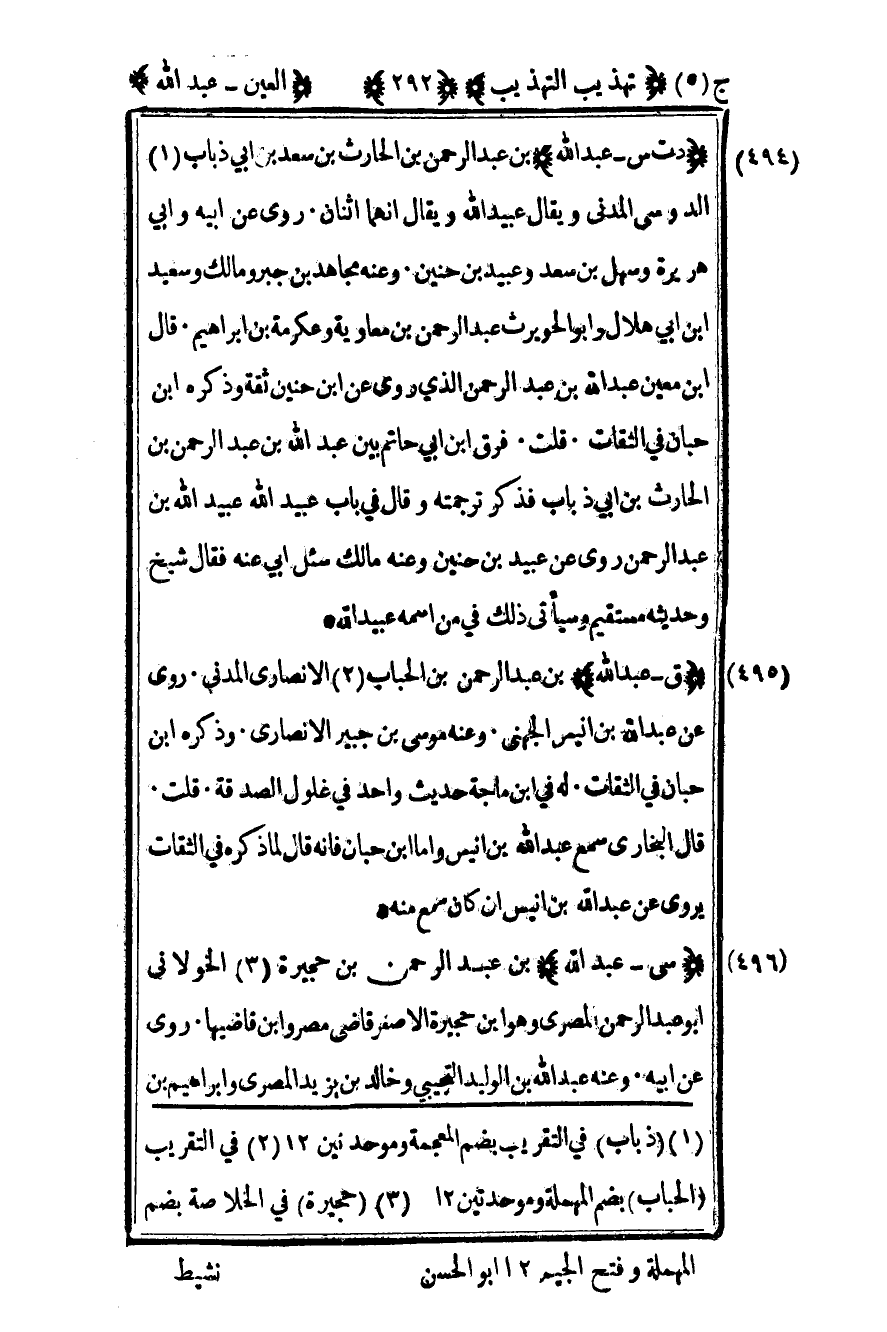 ج (٥) ﴿ تهذيب التهذيب ﴾ ﴿ ٢٩٢ ﴾ ﴿ العين - عبد الله ﴾
(٤٩٤) ﴿ دت س - عبد الله ﴾ بن عبد الرحمن بن الحارث بن سعد بن ابي ذباب (١)
الدوسى المدنى ويقال عبيد الله ويقال انهما اثنان ٠ روى عن ابيه وابي
هريرة وسهل بن سعد وعبيد بن حنين ٠ وعنه مجاهد بن جبر ومالك وسعيد
ابن ابي هلال وابو الحويرث عبد الرحمن بن معاوية وعكرمة بن ابراهيم ٠ قال
ابن معين عبد الله بن عبد الرحمن الذي روى عن ابن حنين ثقة وذكره ابن
حبان في الثقات ٠ قلت ٠ فرق ابن ابي حاتم بين عبد الله بن عبد الرحمن بن
الحارث بن ابي ذباب فذكر ترجمته وقال في باب عبيد الله عبيد الله بن
عبد الرحمن روى عن عبيد بن حنين وعنه مالك سئل ابي عنه فقال شيخ
وحديثه مستقيم وسيأتى ذلك في من اسمه عبيد الله ٠
(٤٩٥) ﴿ ق - عبد الله ﴾ بن عبد الرحمن بن الحباب (٢) الانصارى المدني ٠ روى
عن عبد الله بن انيس الجهني ٠ وعنه موسى بن جبير الانصارى ٠ وذكره ابن
حبان في الثقات ٠ له في ابن ماجة حديث واحد في غلول الصدقة ٠ قلت ٠
قال البخارى سمع عبد الله بن انيس واما ابن حبان فانه قال لما ذكره في الثقات
يروى عن عبد الله بن انيس ان كان سمع منه ٠
(٤٩٦) ﴿ سى - عبد الله ﴾ بن عبد الرحمن بن حجيرة (٣) الخولاني
ابو عبد الرحمن المصرى وهو ابن حجيرة الاصغر قاضى مصر وابن قاضيها ٠ روى
عن ابيه ٠ وعنه عبد الله بن الوليد التجيبي وخالد بن يزيد المصرى وابراهيم بن
(١) (ذباب) في التقريب بضم المعجمة وموحدتين ١٢ (٢) في التقريب
(الحباب) بضم المهملة وموحدتين ١٢ (٣) (حجيرة) في الخلاصة بضم
المهملة وفتح الجيم ١٢ ابو الحسن نشيط